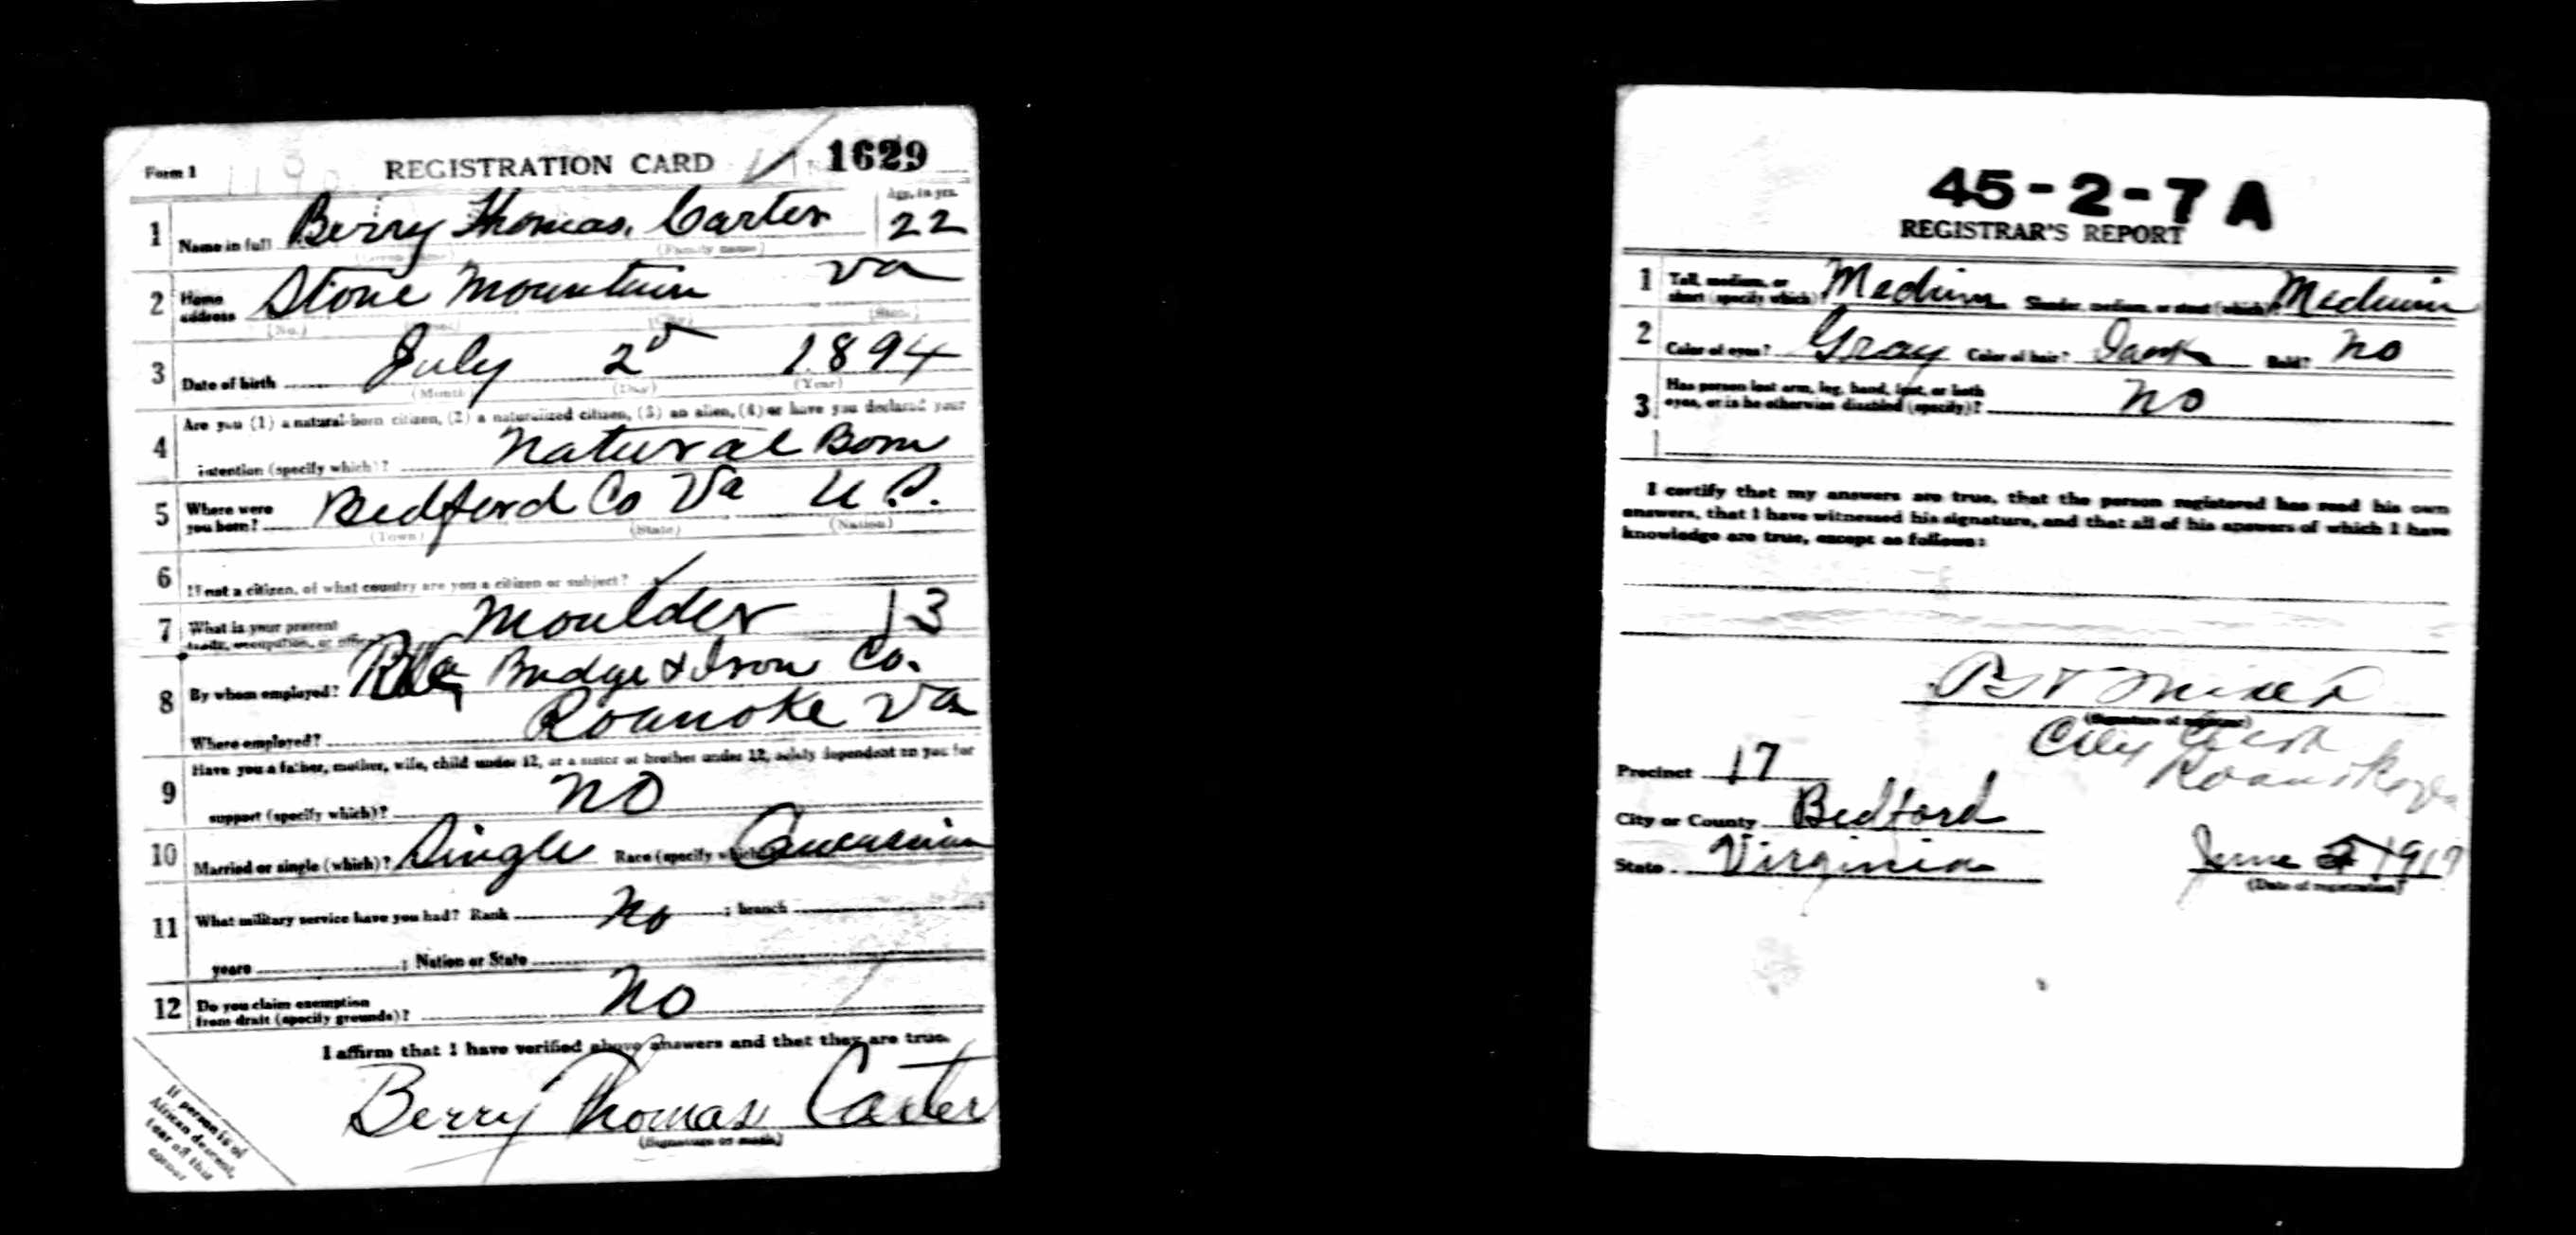 Form 1 REGISTRATION CARD 1629
Age, in yrs.
1 Name in full Berry Thomas, Carter 22
(Given name) (Family name)
2 Home address Stone Mountain Va
(No.) (Street) (City) (State)
3 Date of birth July 25 1894
(Month) (Day) (Year)
Are you (1) a natural-born citizen, (2) a naturalized citizen, (3) an alien, (4) or have you declared your
4 intention (specify which)? Natural Born
5 Where were you born? Bedford Co Va U.S.
(Town) (State) (Nation)
6 If not a citizen, of what country are you a citizen or subject?
7 What is your present trade, occupation, or office? Moulder 13
8 By whom employed? Bridge & Iron Co.
Where employed? Roanoke Va
Have you a father, mother, wife, child under 12, or a sister or brother under 12, solely dependent on you for
9 support (specify which)? No
10 Married or single (which)? Single Race (specify which)? Caucasian
11 What military service have you had? Rank No ; branch
years ; Nation or State
12 Do you claim exemption from draft (specify grounds)? No
I affirm that I have verified above answers and that they are true.
Berry Thomas Carter
(Signature or mark)
If person is of
African descent,
tear off this
corner
45-2-7 A
REGISTRAR'S REPORT
1 Tall, medium, or short (specify which)? Medium Slender, medium, or stout (which)? Medium
2 Color of eyes? Gray Color of hair? Dark Bald? No
3 Has person lost arm, leg, hand, foot, or both eyes, or is he otherwise disabled (specify)? No
I certify that my answers are true, that the person registered has read his own
answers, that I have witnessed his signature, and that all of his answers of which I have
knowledge are true, except as follows:
(Signature of registrar)
City Clerk
Roanoke Va
Precinct 17
City or County Bedford
State Virginia June 5 1917
(Date of registration)